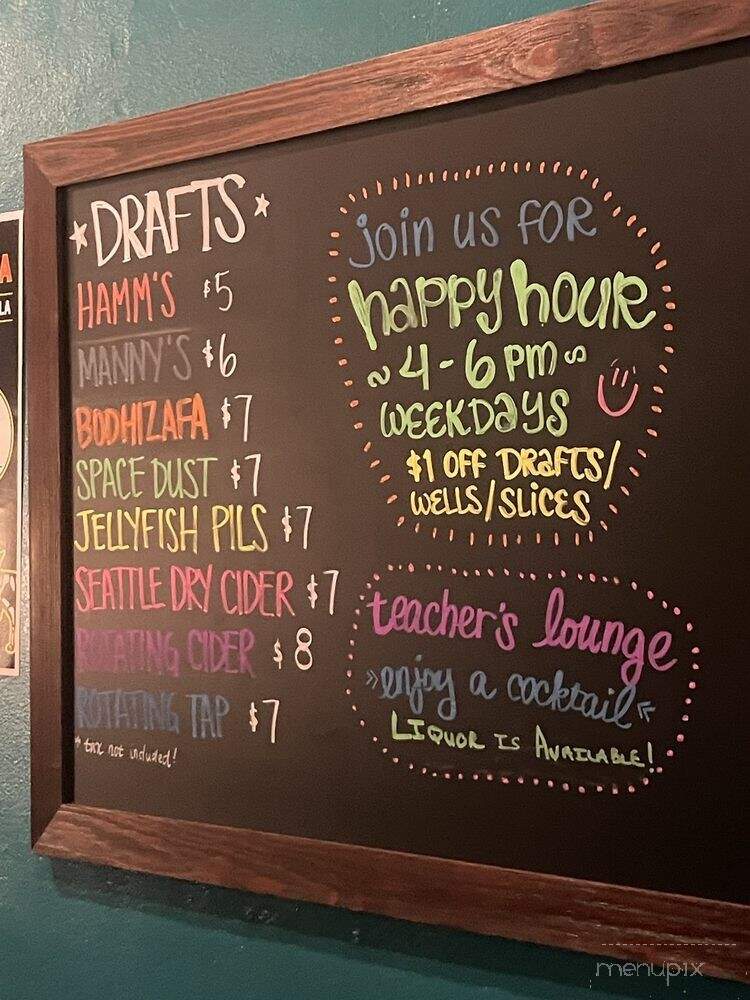 *DRAFTS*
HAMM'S $5
MANNY'S $6
BODHIZAFA $7
SPACE DUST $7
JELLYFISH PILS $7
SEATTLE DRY CIDER $7
ROTATING CIDER $8
ROTATING TAP $7
* tax not included!
join us FOR
happy hour
~ 4-6 PM ~
WEEKDAYS
$1 OFF DRAFTS/
WELLS/SLICES
teacher's lounge
»enjoy a cocktail«
LIQUOR IS AVAILABLE!
A
LA
menupix